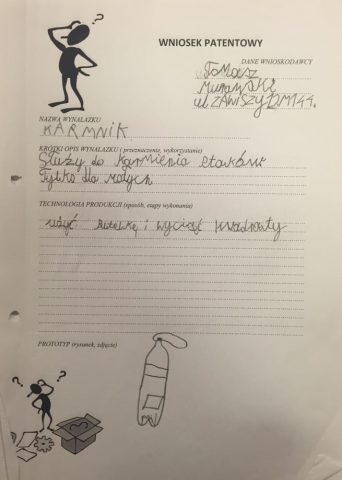 WNIOSEK PATENTOWY
DANE WNIOSKODAWCY
Tomasz
Murawski
ul. ZAWISZY DM 44.
NAZWA WYNALAZKU
KARMNIK
KRÓTKI OPIS WYNALAZKU ( przeznaczenie, wykorzystanie)
Służy do karmienia ptaków
Tylko dla małych
TECHNOLOGIA PRODUKCJI (sposób, etapy wykonania)
użyć butelkę i wyciąć kwadraty
PROTOTYP (rysunek, zdjęcie)